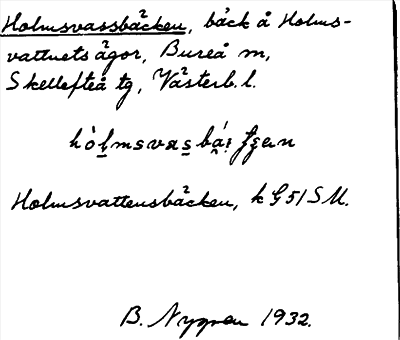 Holmsvassbäcken, bäck å Holms-
vattnets ägor, Bureå m,
Skellefteå tg, Västerb. l.
Holmsvattensbäcken, k G 51 S U.
B. Nygren 1932.